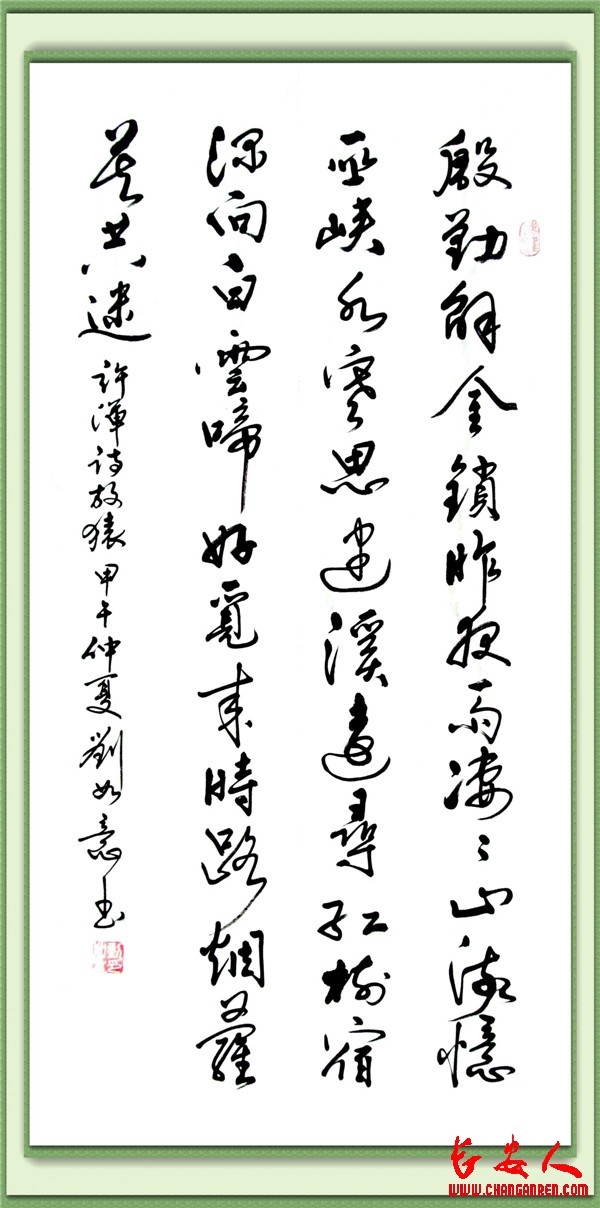 殷勤解金鎖昨夜雨凄〻山淺憶
巫峽水寒思建溪遠尋紅樹宿
深向白雲啼好覓來時路烟蘿
莫共迷 許渾詩放猿 甲午仲夏 劉如意書
长安人
WWW.CHANGANREN.COM